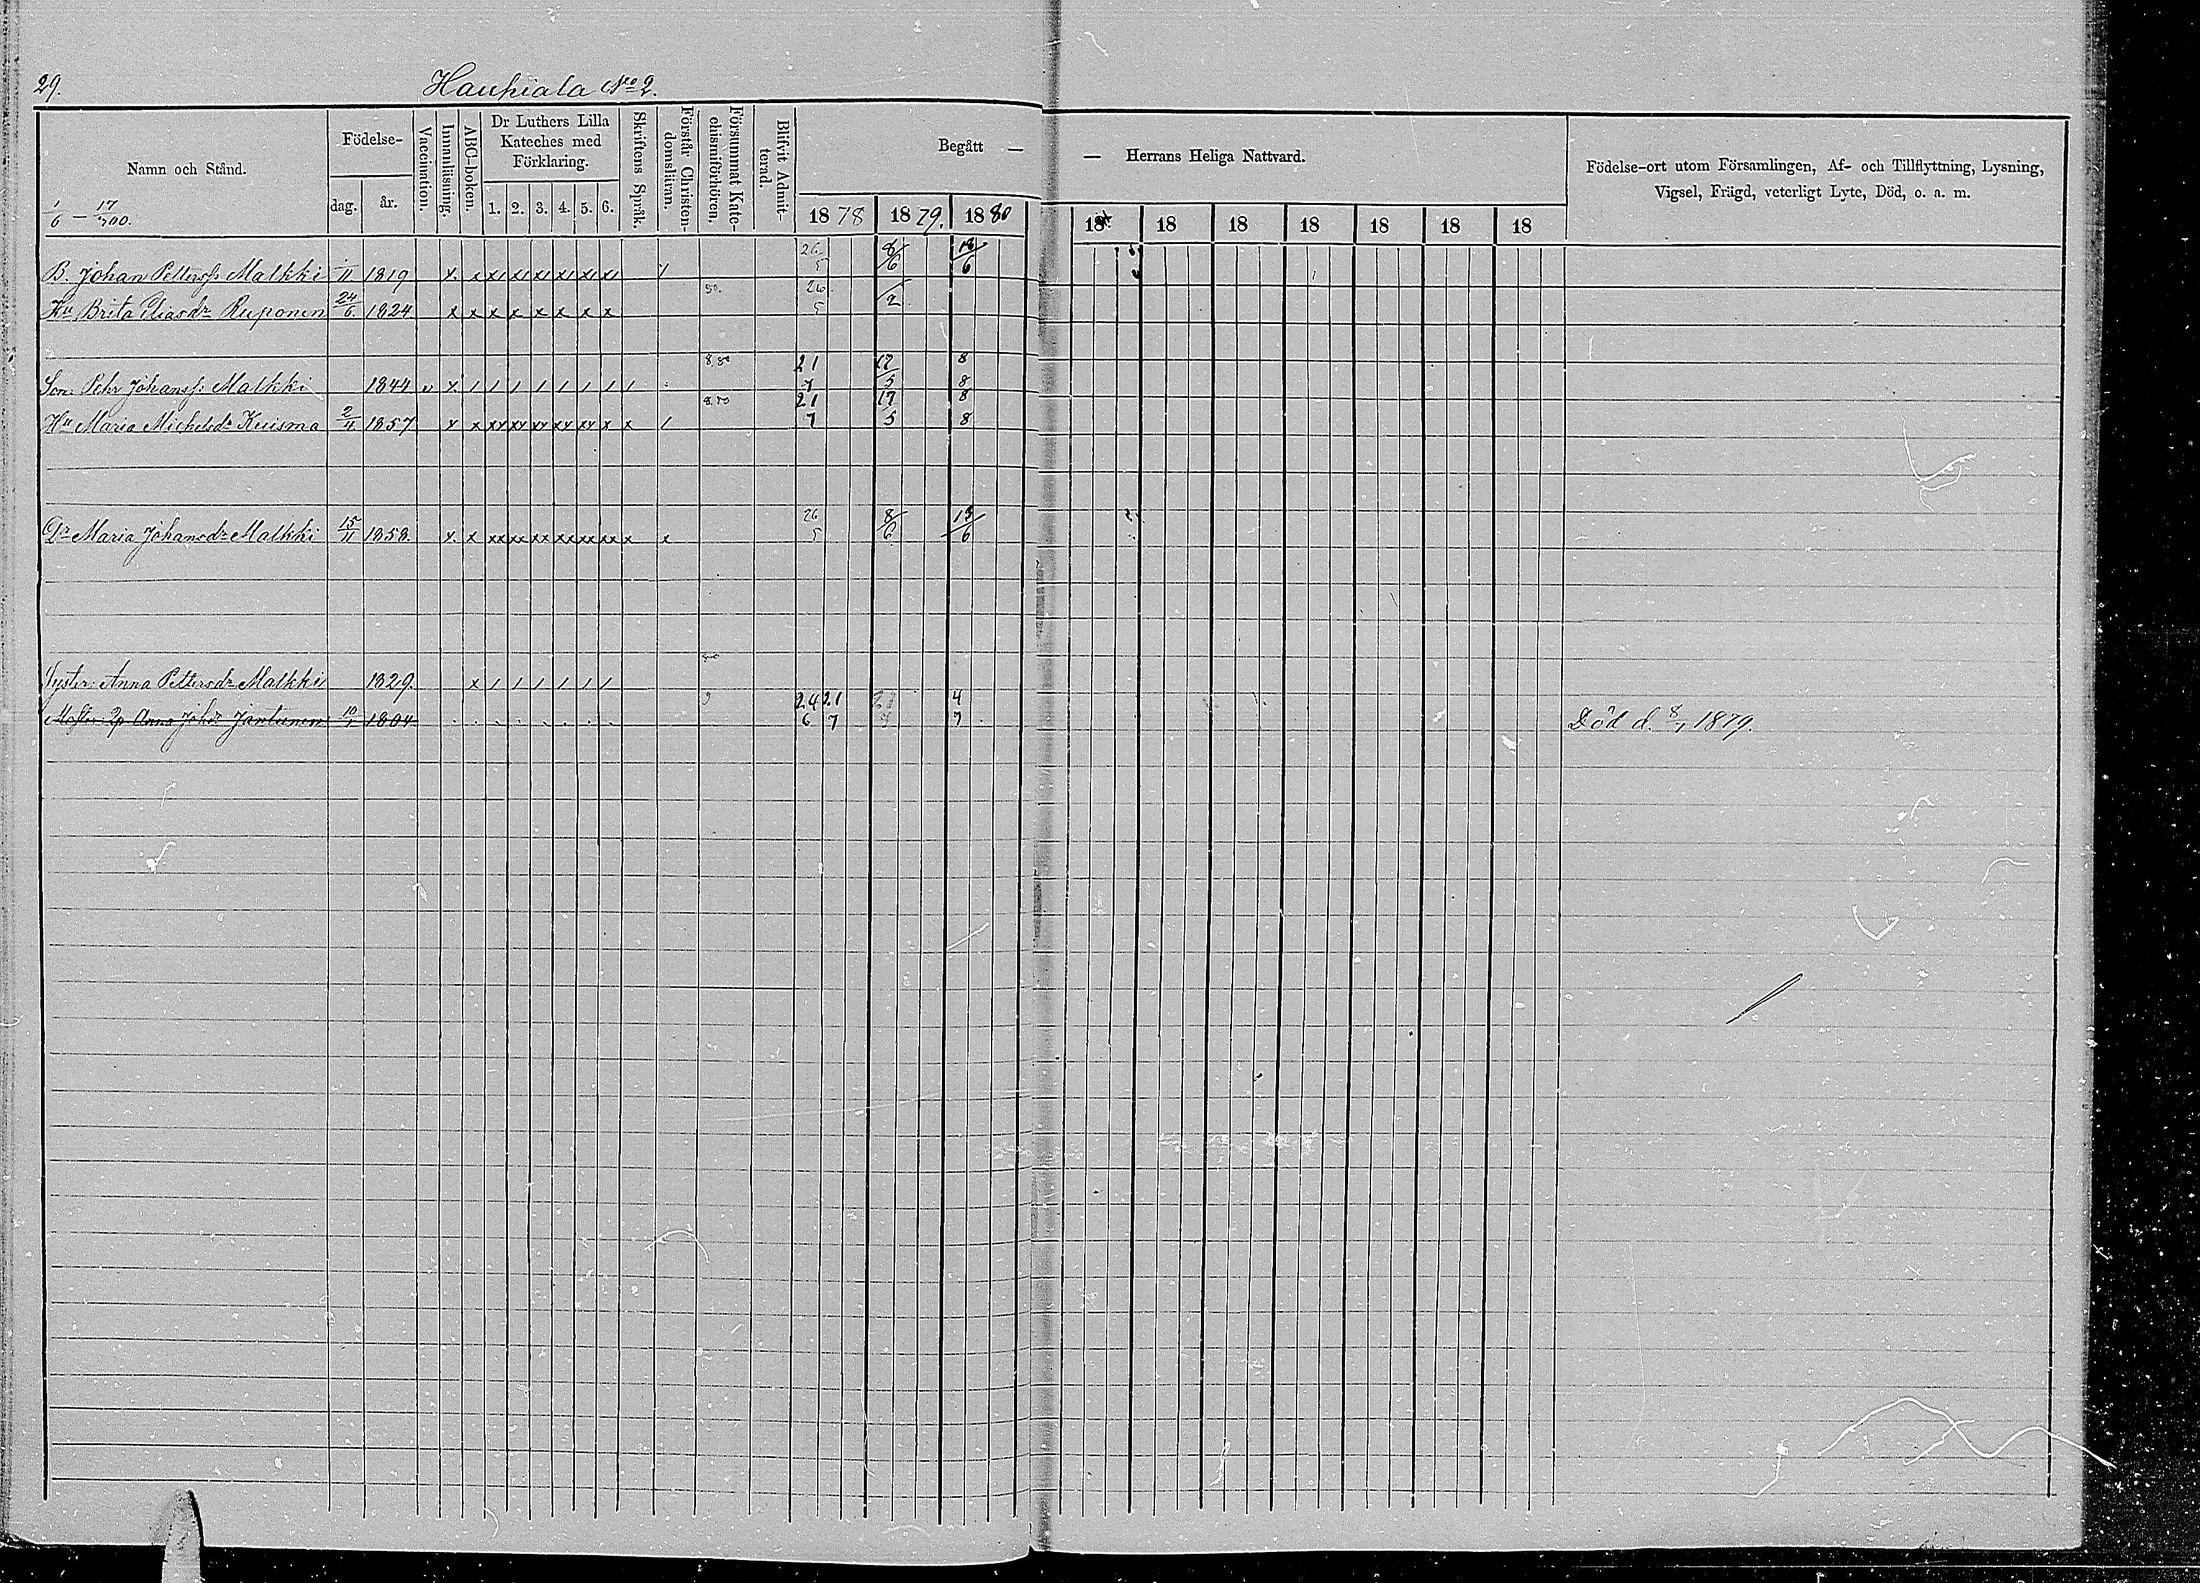 29. Hauhiala No 2.
Namn och Stånd.
1/6 – 17/300.
Födelse-
dag. år.
Vaccination.
Innanläsning.
ABC-boken.
Dr Luthers Lilla
Kateches med
Förklaring.
1. 2. 3. 4. 5. 6.
Skriftens Språk.
Förstår Christen-
domsläran.
Försummat Kate-
chismiförhören.
Blifvit Admit-
terad.
Begått —
— Herrans Heliga Nattvard.
1878 1879. 1880
18 18 18 18 18 18 18
Födelse-ort utom Församlingen, Af- och Tillflyttning, Lysning,
Vigsel, Frägd, veterligt Lyte, Död, o. a. m.
B. Johan Petterss: Malkki 1819 x x x1 x1 x1 x1 x1 x1 26/5 8/6 13/6
Hu Brita Eliasdr Ruponen 24/6 1824 x x x x x x x x 26/5
Son: Pehr Johanss: Malkki 1844 v x 1 1 1 1 1 1 1 1 21/7 17/5 8/8
Hu Maria Michelsdr Kuisma 2/11 1857 x x xx xx xx xx xx x x 1 21/7 17/5 8/8
Dr Maria Johansdr Malkki 15/11 1858. x x xx xx xx xx xx xx x x 26/5 8/6 13/6
Syster: Anna Pettersdr Malkki 1829. x 1 1 1 1 1 1
Anna 1804 24/6 21/7 4/7 Död d. 8/7 1879.